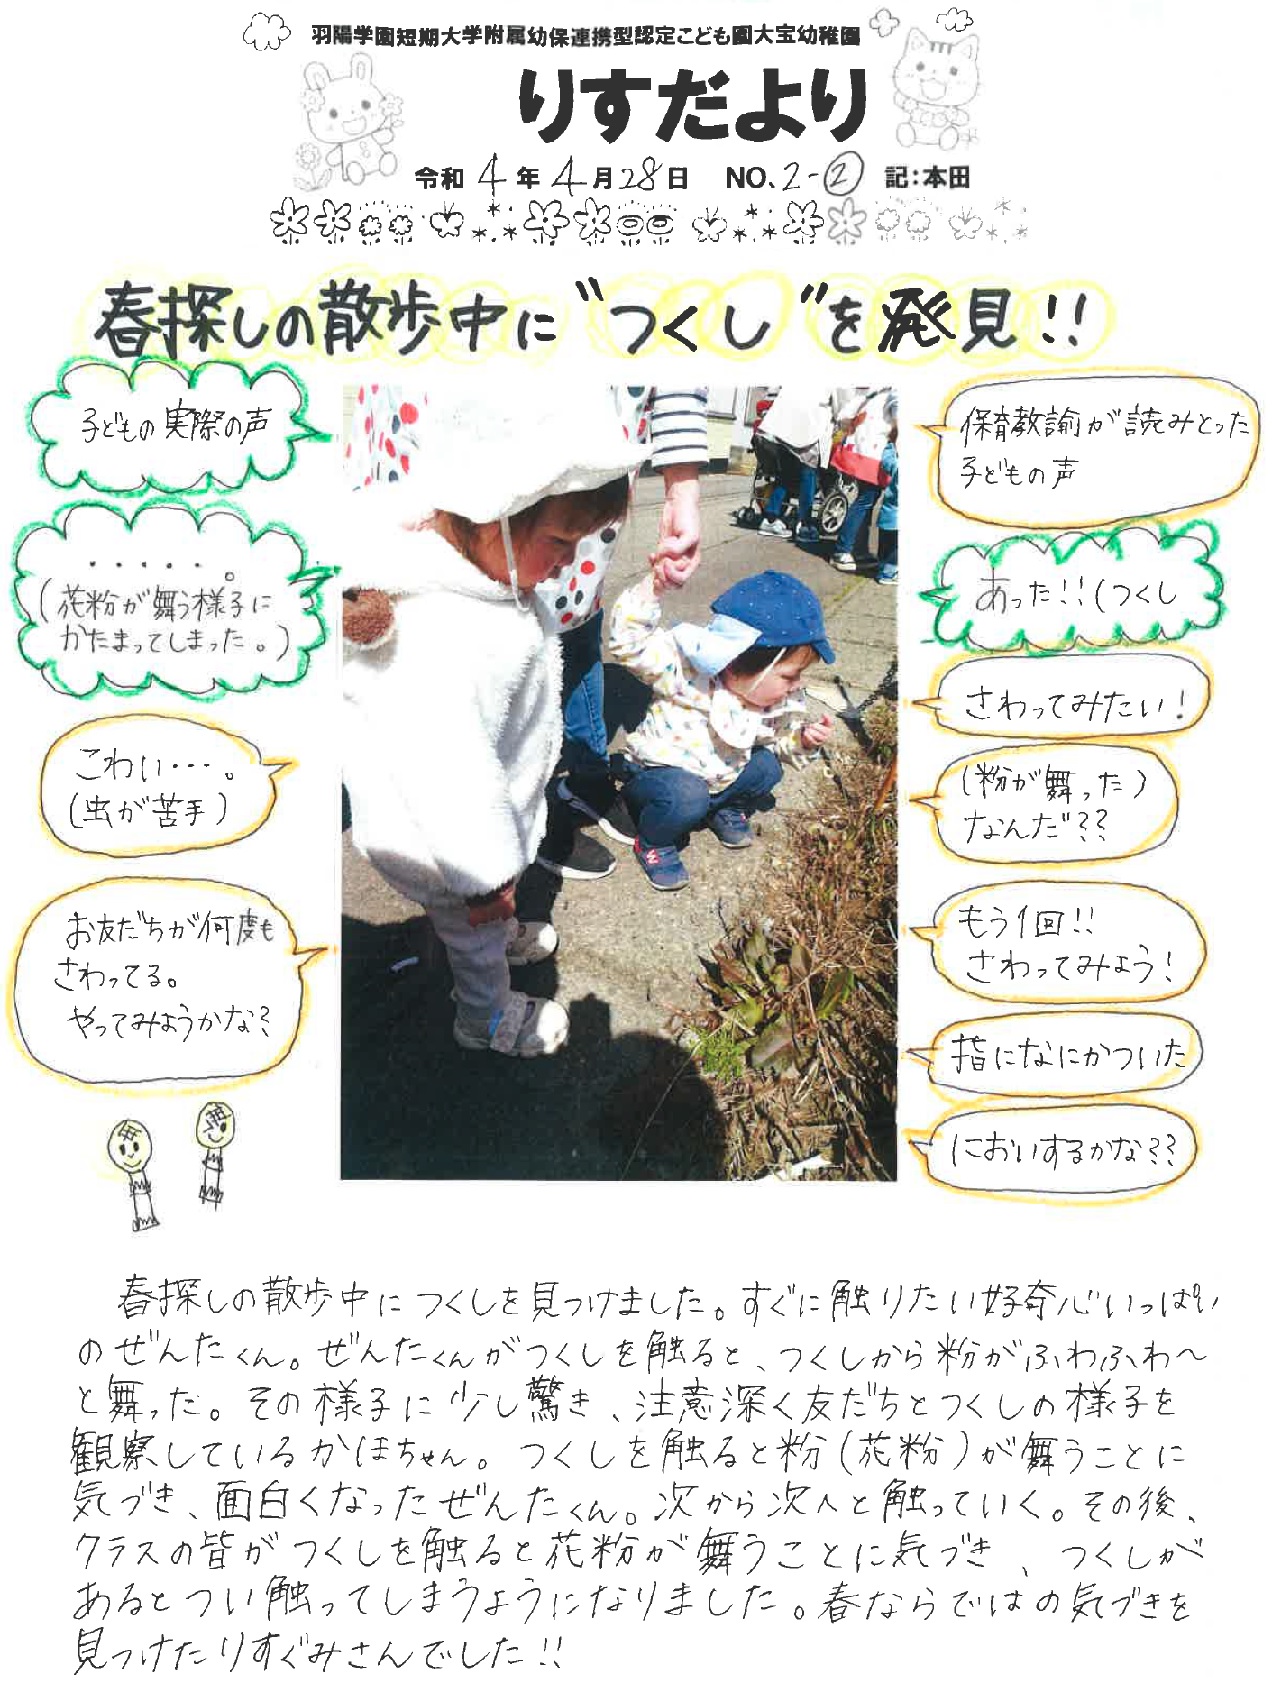 羽陽学園短期大学附属幼保連携型認定こども園大宝幼稚園
りすだより
令和4年4月28日 NO.2-② 記:本田
春探しの散歩中に"つくし"を発見!!
子どもの実際の声
・・・・・。
(花粉が舞う様子に
かたまってしまった。)
こわい…。
(虫が苦手)
お友だちが何度も
さわってる。
やってみようかな?
保育教諭が読みとった
子どもの声
あった!!(つくし
さわってみたい!
(粉が舞った)
なんだ??
もう1回!!
さわってみよう!
指になにかついた
においするかな??
春探しの散歩中につくしを見つけました。すぐに触りたい好奇心いっぱい
のぜんたくん。ぜんたくんがつくしを触ると、つくしから粉がふわふわ〜
と舞った。その様子に少し驚き、注意深く友だちとつくしの様子を
観察しているかほちゃん。つくしを触ると粉(花粉)が舞うことに
気づき、面白くなったぜんたくん。次から次へと触っていく。その後、
クラスの皆がつくしを触ると花粉が舞うことに気づき、つくしが
あるとつい触ってしまうようになりました。春ならではの気づきを
見つけたりすぐみさんでした!!